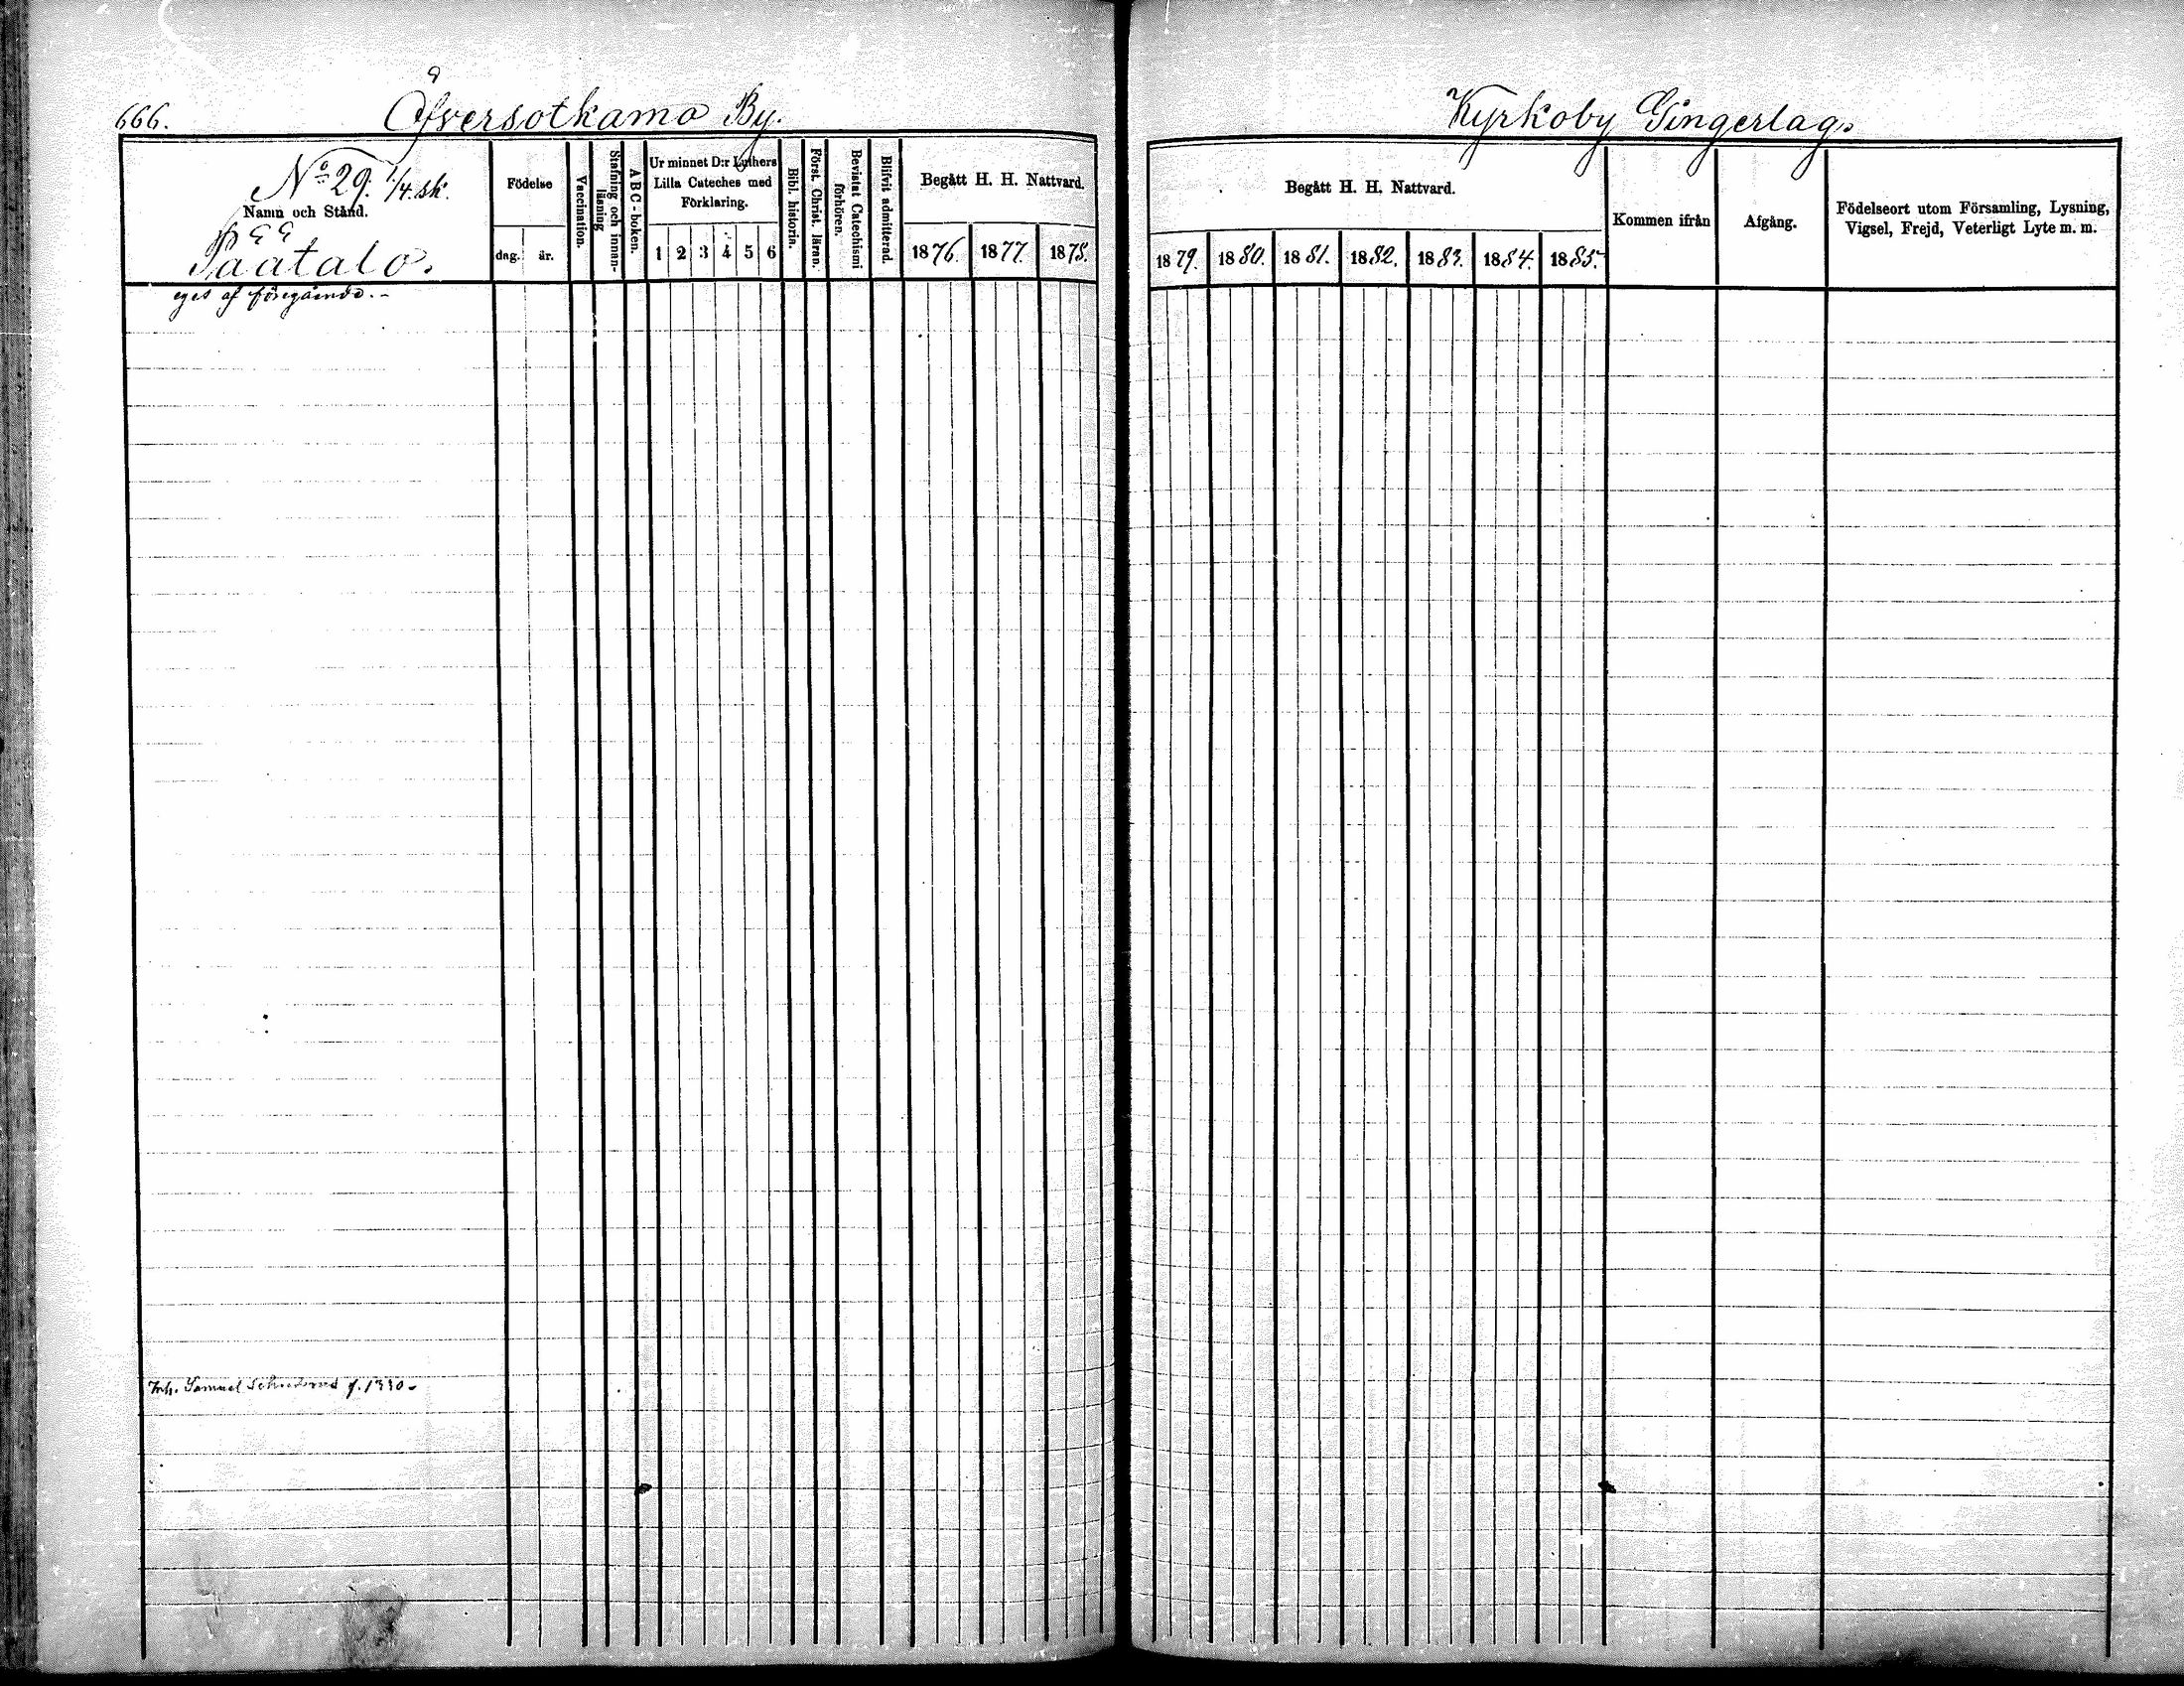 666. Öfversotkamo By.
Kyrkoby Gingerlag.
No 29. 1/4. sk.
Namn och Stånd.
Päätalo.
Födelse
dag. år.
Vaccination.
Stafning och innanläsning
ABC-boken.
Ur minnet D:r Luthers
Lilla Cateches med
Förklaring.
1 2 3 4 5 6
Bibl. historia.
Först. Christ. läran.
Bevistat Catechismi
förhören.
Blifvit admitterad.
Begått H. H. Nattvard.
1876. 1877. 1878.
eges af föregående.
Begått H. H. Nattvard.
1879. 1880. 1881. 1882. 1883. 1884. 1885.
Kommen ifrån
Afgång.
Födelseort utom Församling, Lysning,
Vigsel, Frejd, Veterligt Lyte m. m.
Inh. Samuel